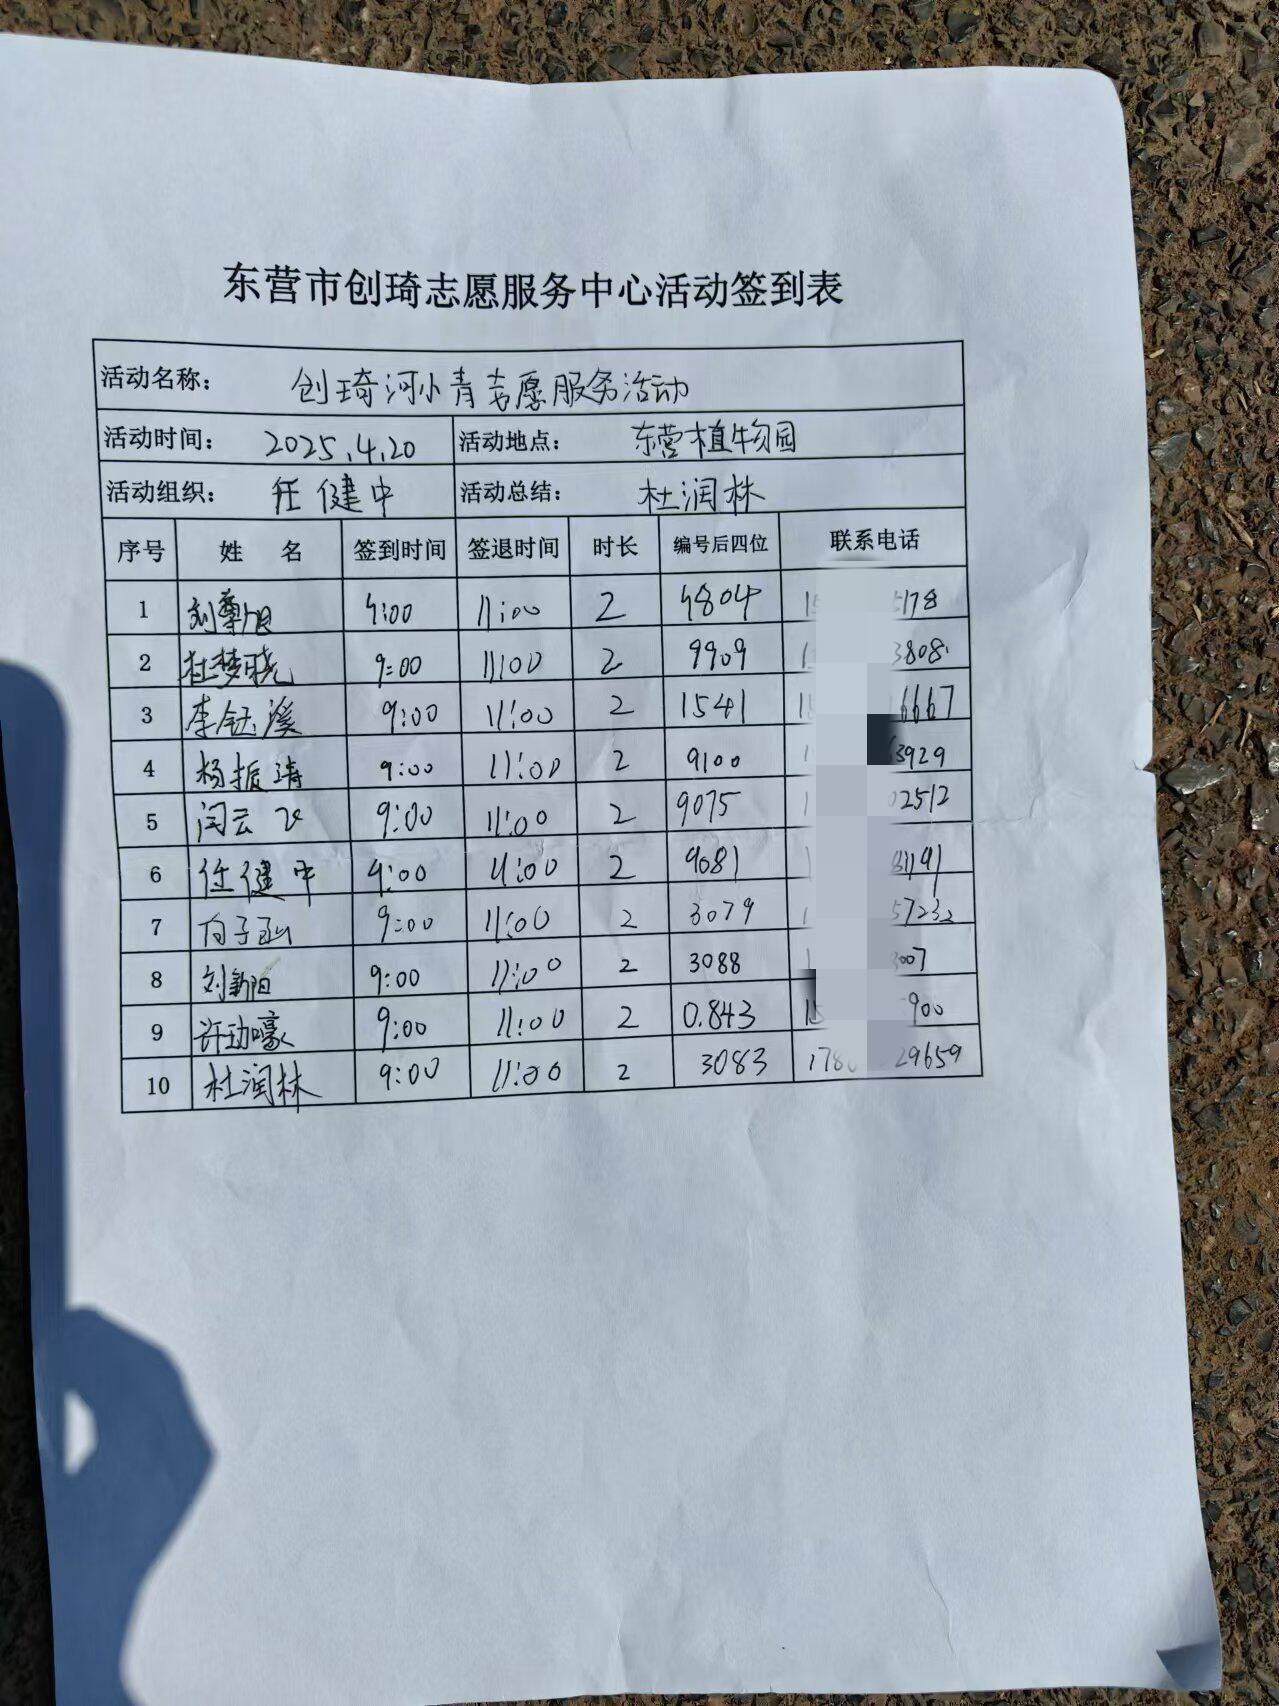 东营市创琦志愿服务中心活动签到表
活动名称： 创琦河小青志愿服务活动
活动时间： 2025.4.20 活动地点： 东营植物园
活动组织： 任健中 活动总结： 杜润林
序号 姓 名 签到时间 签退时间 时长 编号后四位 联系电话
1 刘尊旭 9:00 11:00 2 9804 15 5178
2 杜梦晓 9:00 11:00 2 9909 1 3808
3 李钰溪 9:00 11:00 2 1541 15 16667
4 杨振清 9:00 11:00 2 9100 1 3929
5 闫云飞 9:00 11:00 2 9075 1 02512
6 任健中 9:00 11:00 2 9081 1 1191
7 向子函 9:00 11:00 2 3079 1 57232
8 刘新阳 9:00 11:00 2 3088 1 3007
9 许动嚎 9:00 11:00 2 0.843 15 900
10 杜润林 9:00 11:00 2 3083 178 29659